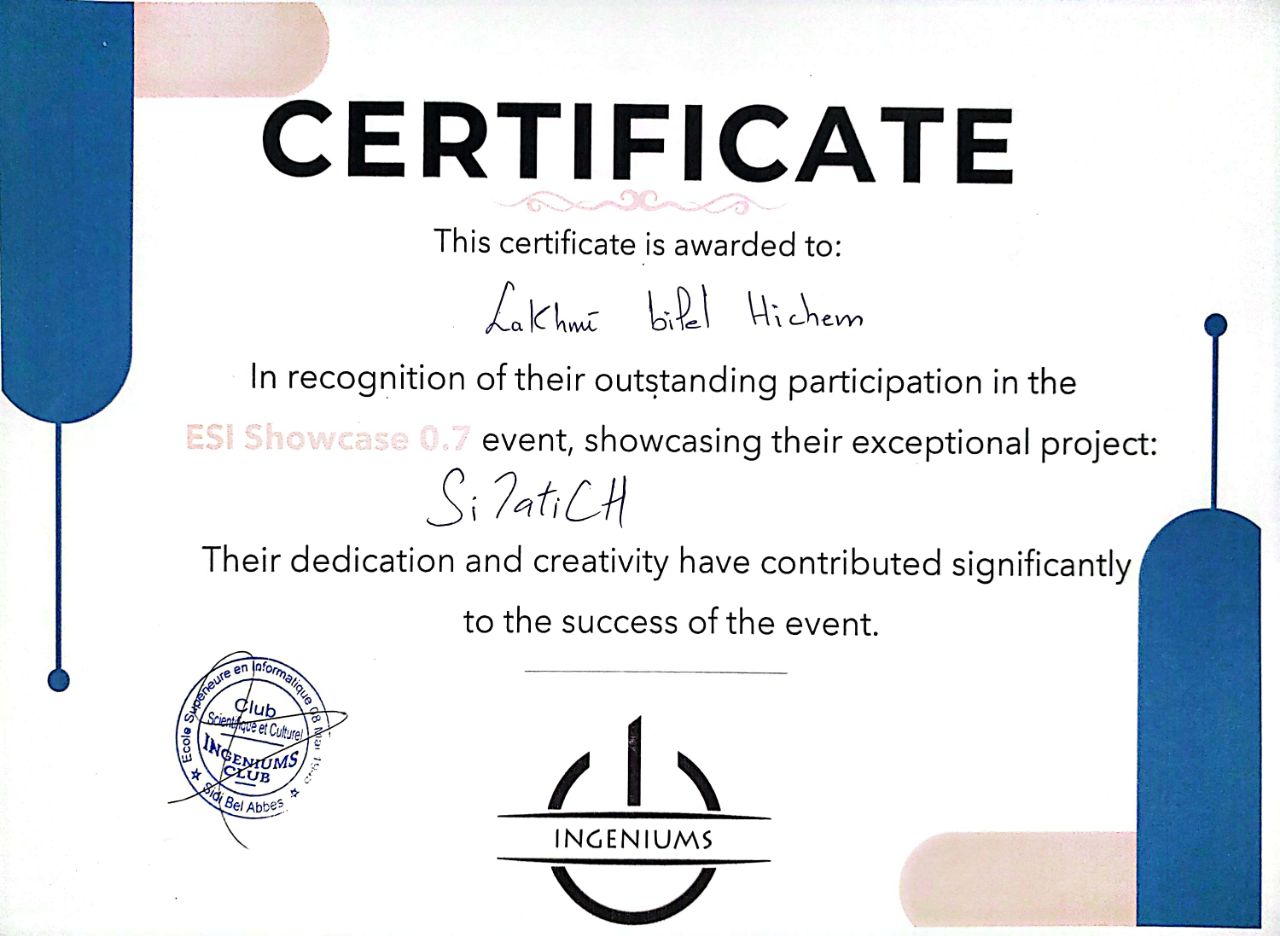 CERTIFICATE
This certificate is awarded to:
Lakhmi bilel Hichem
In recognition of their outstanding participation in the
ESI Showcase 0.7 event, showcasing their exceptional project:
Their dedication and creativity have contributed significantly
to the success of the event.
Ecole Supérieure en Informatique 08 Mai 1945
Club
Scientifique et Culturel
INGENIUMS
CLUB
Sidi Bel Abbes
INGENIUMS